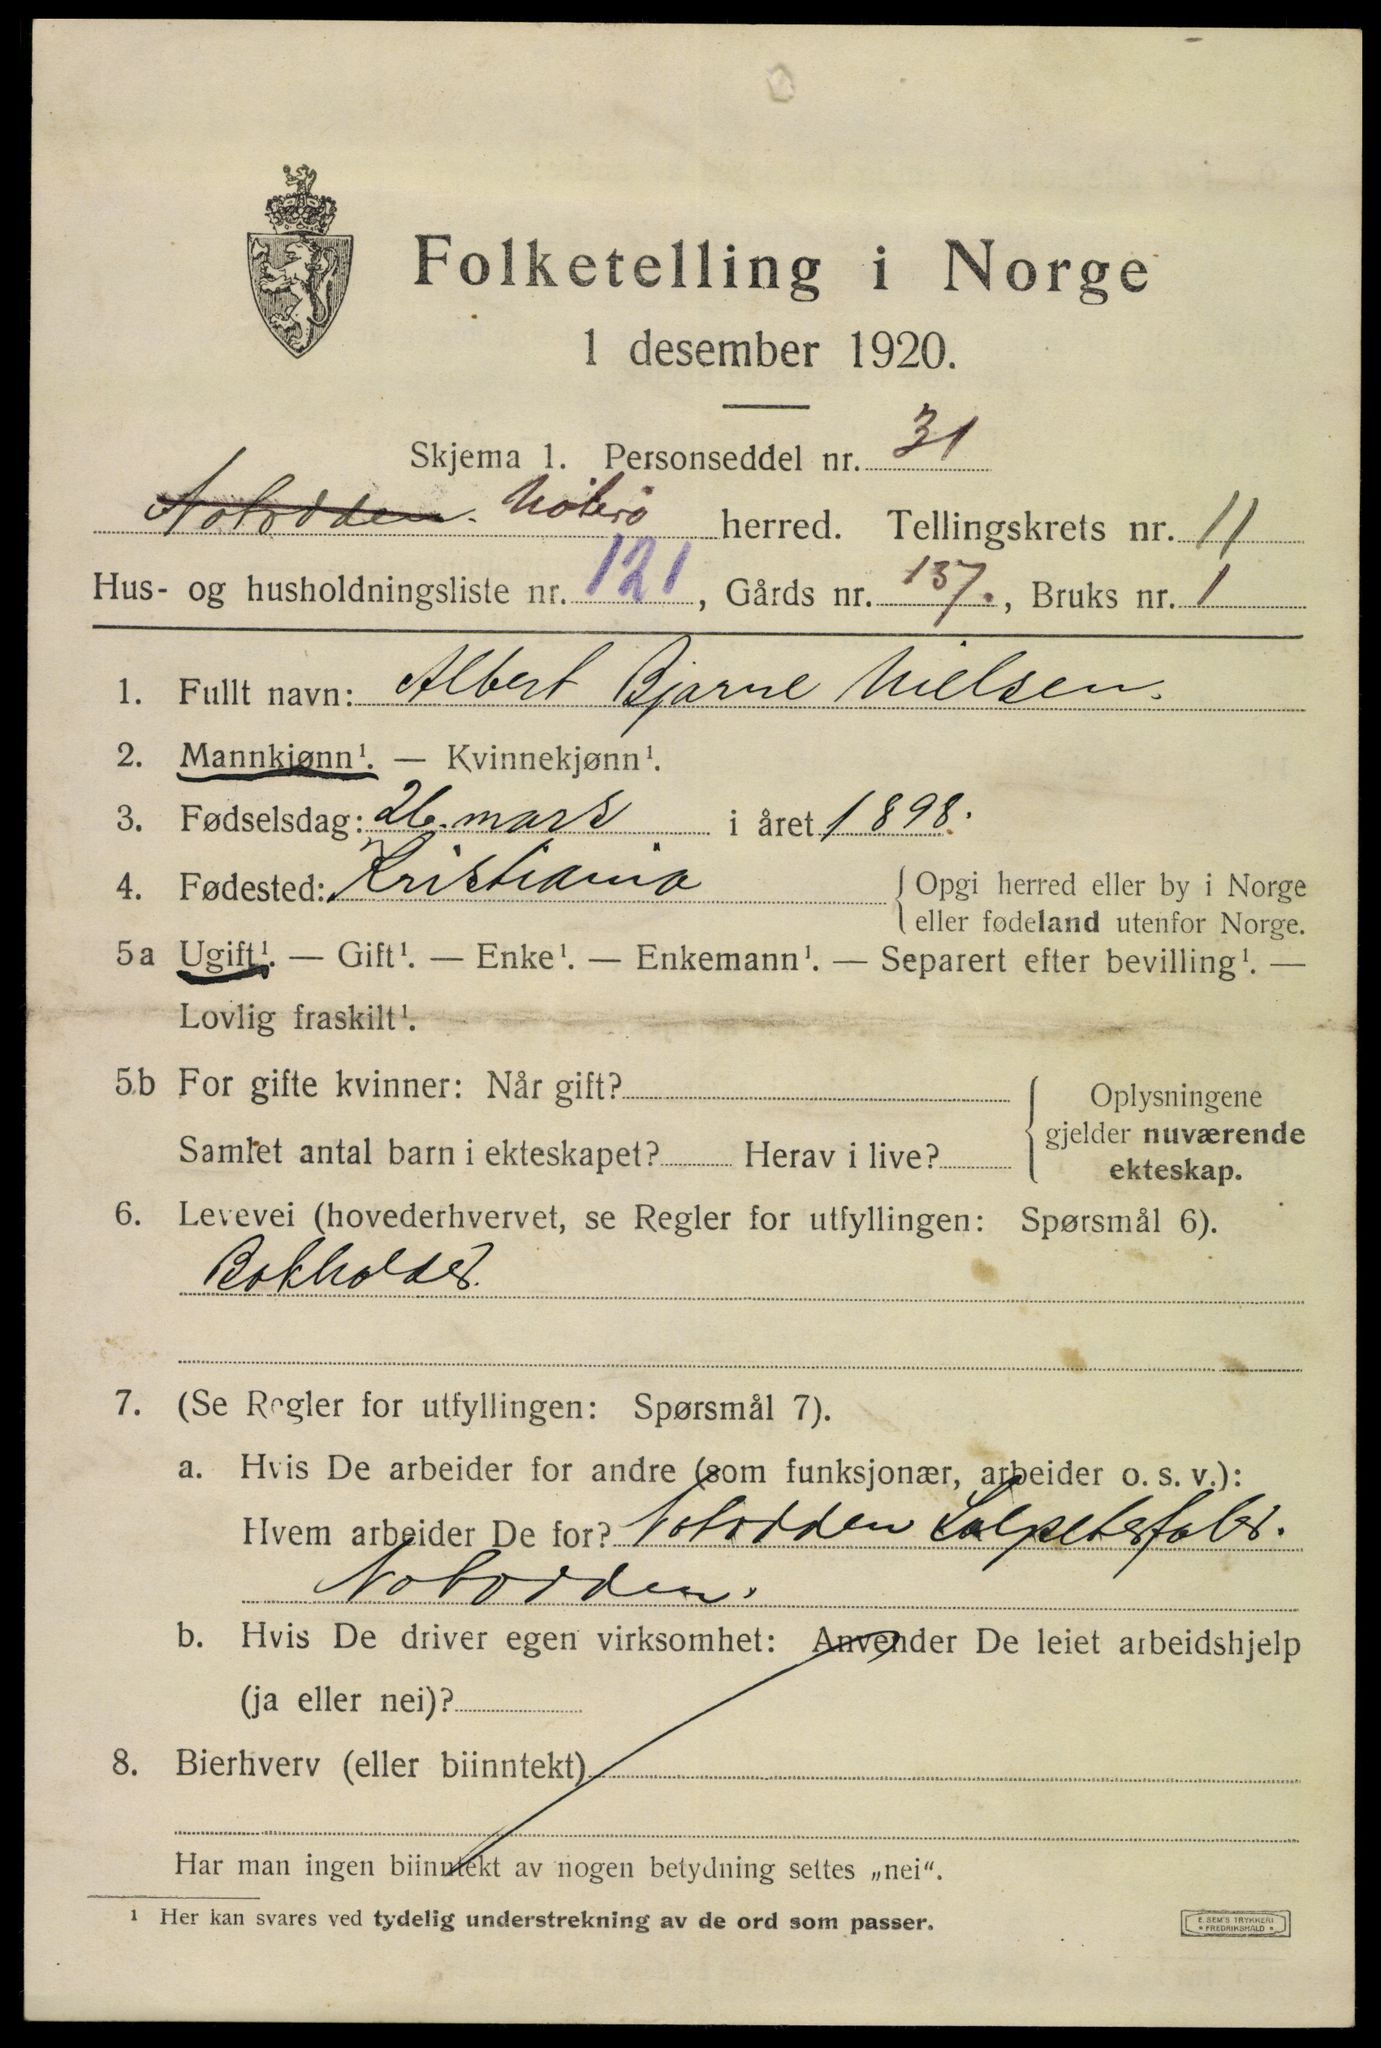 Folketelling i Norge
1 desember 1920.
Skjema 1. Personseddel nr. 31
Notodden. Nøterø herred. Tellingskrets nr. 11
Hus- og husholdningsliste nr. 121, Gårds nr. 137., Bruks nr. 1
1. Fullt navn: Albert Bjarne Nielsen.
2. Mannkjønn¹. — Kvinnekjønn¹.
3. Fødselsdag: 26. mars i året 1898.
4. Fødested: Kristiania { Opgi herred eller by i Norge
eller fødeland utenfor Norge.
5a Ugift¹. — Gift¹. — Enke¹. — Enkemann¹. — Separert efter bevilling¹. —
Lovlig fraskilt¹.
5b For gifte kvinner: Når gift?
Samlet antal barn i ekteskapet? Herav i live?
Oplysningene
gjelder nuværende
ekteskap.
6. Levevei (hovederhvervet, se Regler for utfyllingen: Spørsmål 6).
Bokholder.
7. (Se Regler for utfyllingen: Spørsmål 7).
a. Hvis De arbeider for andre (som funksjonær, arbeider o. s. v.):
Hvem arbeider De for? Notodden Salpeterfabr.
Notodden.
b. Hvis De driver egen virksomhet: Anvender De leiet arbeidshjelp
(ja eller nei)?
8. Bierhverv (eller biinntekt)
Har man ingen biinntekt av nogen betydning settes „nei“.
¹ Her kan svares ved tydelig understrekning av de ord som passer.
E. SEM'S TRYKKERI
• FREDRIKSHALD •